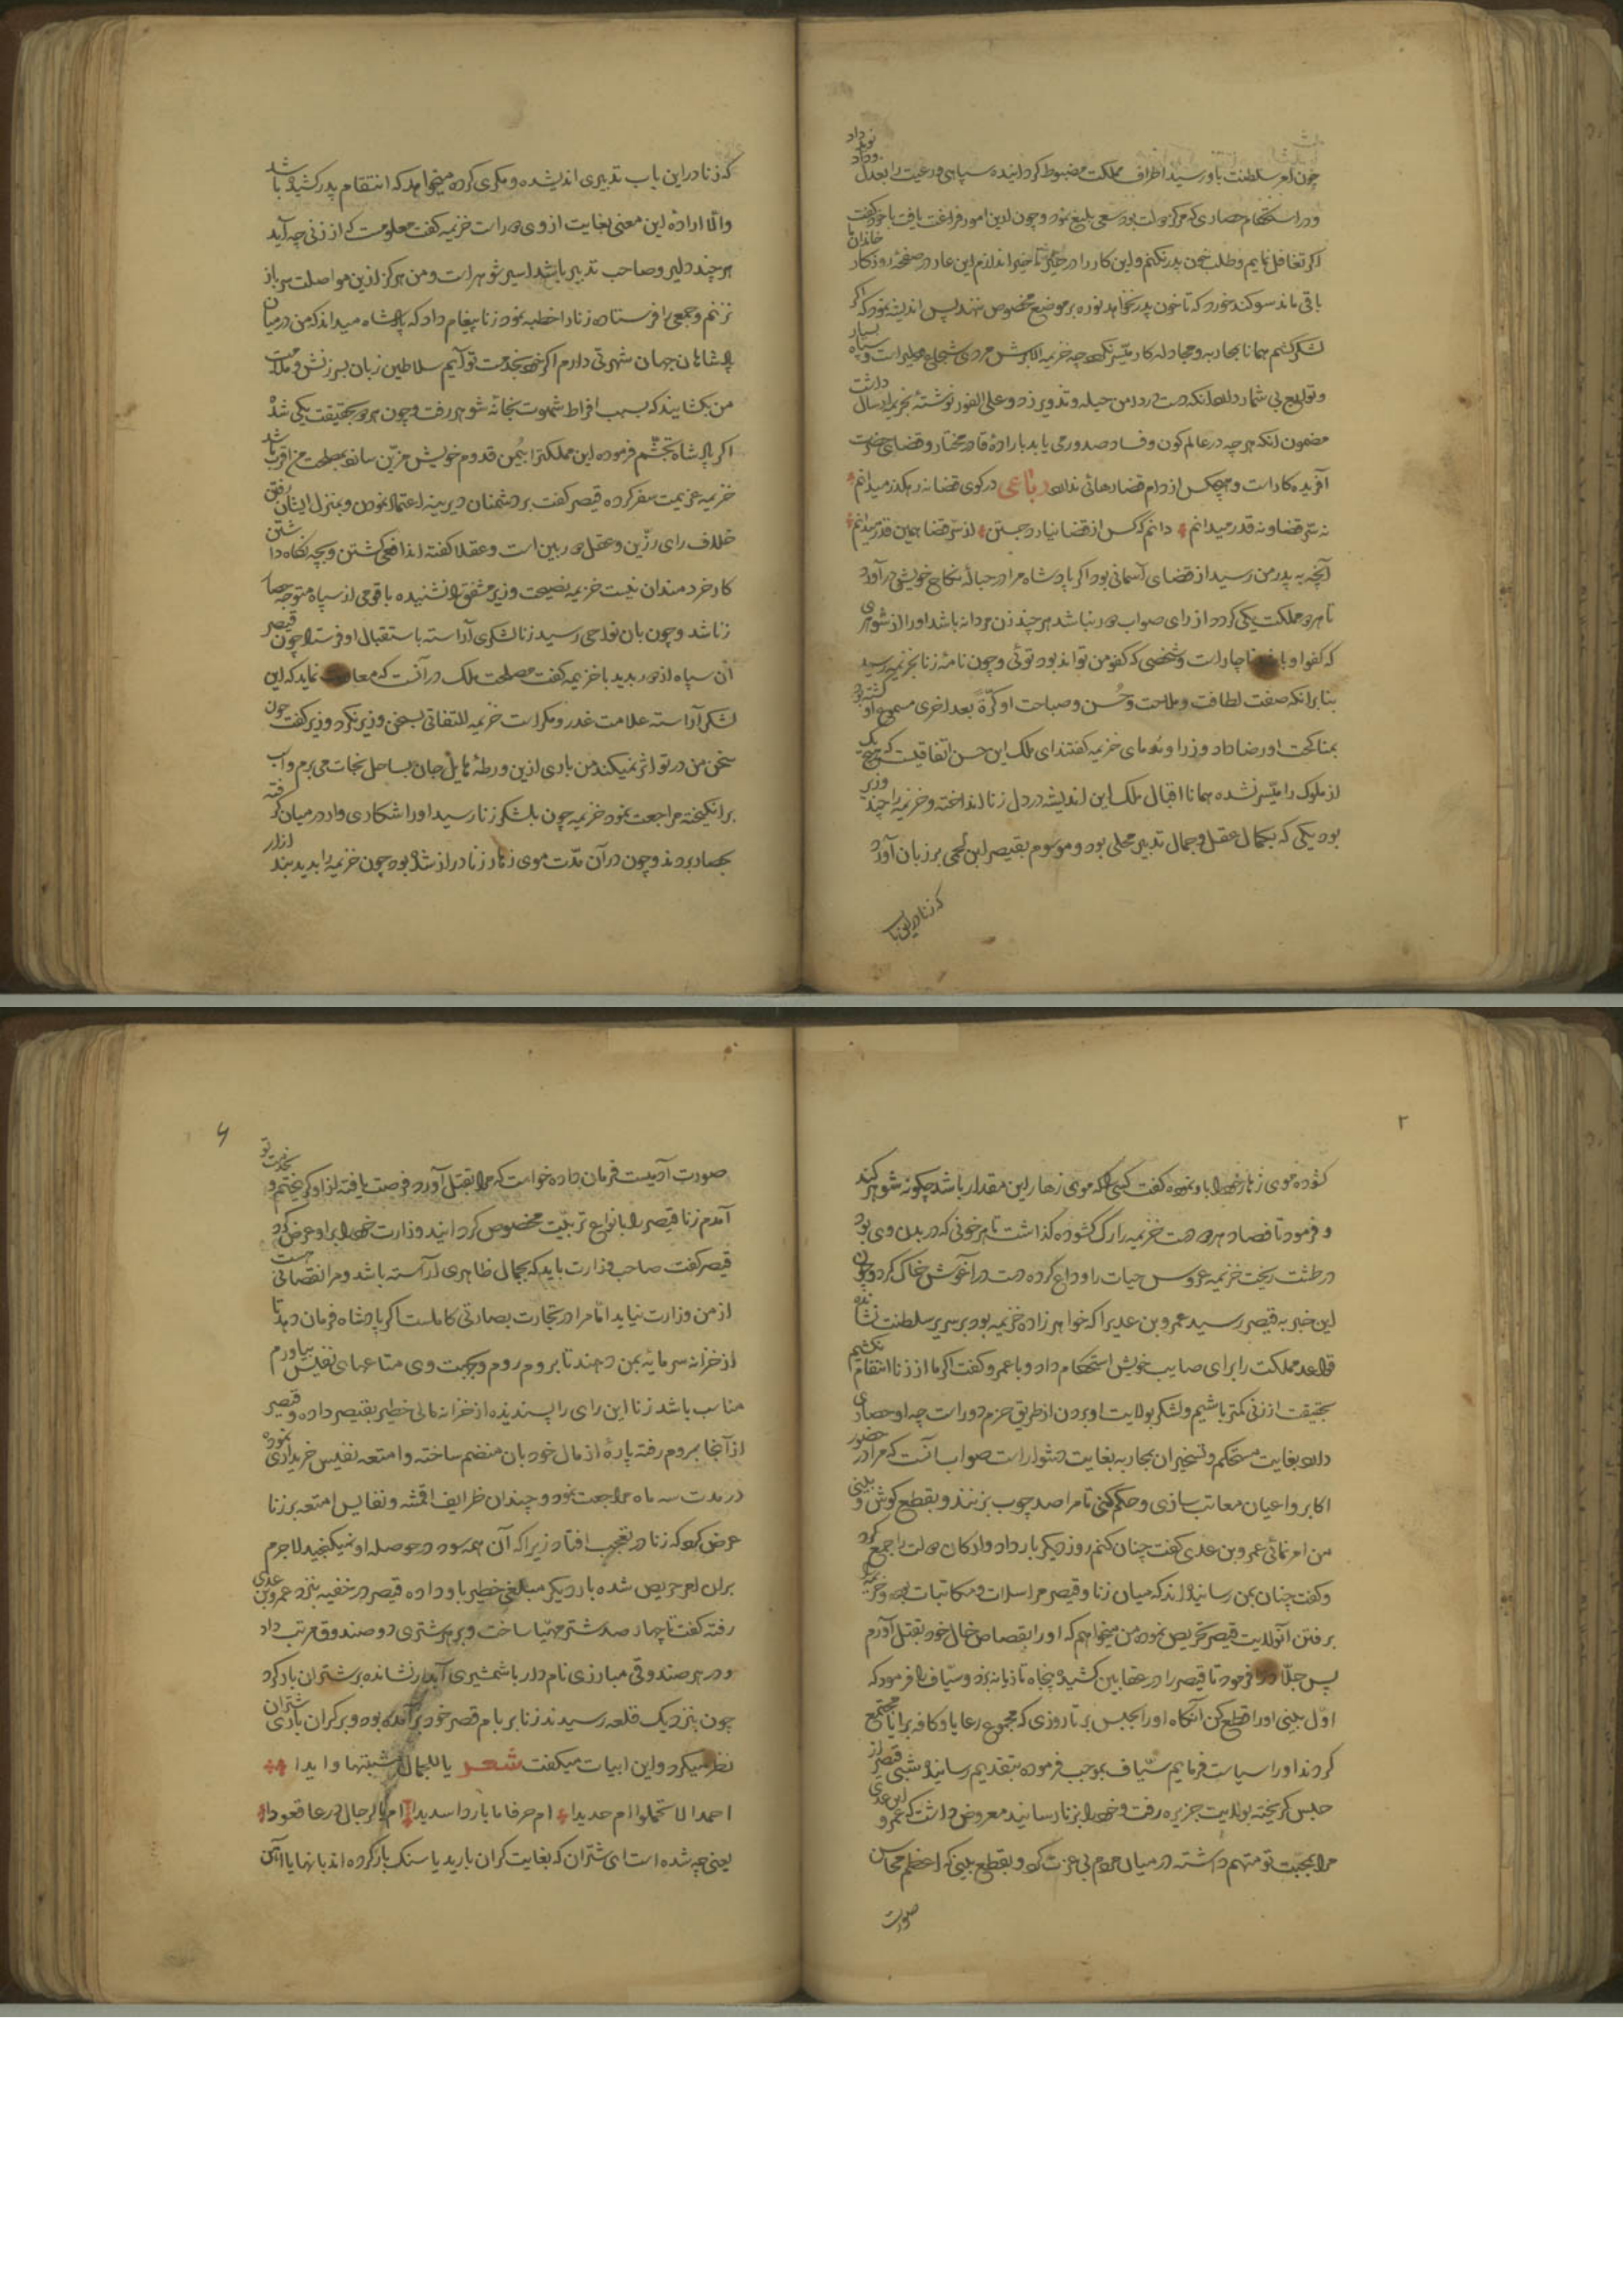 چون امر سلطنت باو رسید اطراف مملکت مضبوط کردانیده سپاهی و رعیت را بعدل نوید داد
و در استحکام حصاری که مرکز دولت بود سعی بلیغ نمود و چون ازین امور فراغت یافت با خود گفت
اکر تغافل نمایم و طلب خون پدر نکنم و این کار را در حیز تاخیر اندازم این عار در صفحه روزکار خاندان ما
باقی ماند سوکند خورد که تا خون پدر نخواهد نوره بر موضع مخصوص ننهد پس اندیشه نمود که اکر
لشکر کشم همانا بمحاربه و مجادله کار میسر نکردد چه خزیمه الابرش مردی شجاع و دلیر است و سپاه بسیار
و توابع بی شمار دارد انکه دست در دامن حیله و تذویر زد و علی الفور نوشتهٔ بخزیمه ارسال داشت
مضمون انکه هر چه در عالم کون و فساد صدور می یابد بارادهٔ قادر مختار و قضای حضرت
آفریده کار است و هیچکس از دام قضا رهائی ندارد رباعی در کوی قضا نه رهکذر میدانم
نه سر قضا و نه قدر میدانم دانم که کس از قضا نیارد جستن از سر قضا همین قدر میدانم
آنچه به پدر من رسید از قضای آسمانی بود اکر پادشاه مرا در حبالهٔ نکاح خویش در آورد
تا هر دو مملکت یکی کردد از رای صواب دور نباشد هر چند زن مردانه باشد او را از شوهری
که کفو او باشد ناچار است و شخصی که کفو من تواند بود توئی و چون نامهٔ زنا بخزیمه رسید
بنابر انکه صفت لطافت و ملاحت و حُسن و صباحت او کرّة بعد اخری مسموع او کشته بود
بمناکحت او رضا داد وزرا و ندمای خزیمه کفتند ای ملک این حسن اتفاقیست که هیچ یک
از ملوک را میسّر نشده همانا اقبال ملک این اندیشه در دل زنا انداخته و خزیمه را چند وزیر
بود یکی که بکمال عقل و جمال تدبیر محلی بود و موسوم بقیصر ابن لحی بر زبان آورد
که زنا در این باب
که زنا در این باب تدبیری اندیشده و مکری کرده میخواهد که انتقام پدر کشیده باشد
والّا ارادهٔ این معنی بغایت از وی دور است خزیمه کفت معلومست که از زنی چه آید
هر چند دلیر و صاحب تدبیر باشد اسیر شوهر است و من هرکز ازین مواصلت سر باز
نزنم و جمعی را فرستاده زنا را خطبه نمود زنا پیغام داد که پادشاه میداند که من در میان
پادشاهان جهان شهرتی دارم اکر خود بخدمت تو آیم سلاطین زبان بسرزنش و ملامت
من بکشایند که بسبب افراط شهوت بخانه شوهر رفت و چون هر دو بحقیقت یکی شده
اکر پادشاه تجشّم فرموده این مملکترا بیُمن قدوم خویش مزیّن سازد بمصلحت من اقرب باشد
خزیمه عزیمت سفر کرده قیصر کفت بر دشمنان دیرینه اعتماد نمودن و بمنزل ایشان رفتن
خلاف رای رزین و عقل دور بین است و عقلا کفته اند افعی کشتن و بچه نکاه داشتن
کار خردمندان نیست خزیمه نصیحت وزیر مشفق را نشنیده با قومی از سپاه متوجه حصار
زنا شد و چون بان نواحی رسید زنا لشکری آراسته باستقبال او فرستاد چون قیصر
آن سپاه از دور بدید با خزیمه کفت مصلحت ملک در آنست که معاودت نماید که این
لشکر آراسته علامت غدر و مکر است خزیمه التفاتی بسخن وزیر نکرد وزیر کفت چون
سخن من در تو اثر نمیکند من باری ازین ورطهٔ هایل جان بساحل نجات می برم و اسب
برانکیخته مراجعت نمود خزیمه چون بلشکر زنا رسید او را شکاری وار در میان کرفته
بحصار بردند و چون در آن مدّت موی زهار زنا دراز شده بود چون خزیمه را بدید بند ازار
۲
کشوده موی زهار خود را باو نموده کفت کسی را که موی زهار این مقدار باشد چکونه شوهر کند
و فرمود تا فصاد هر دو دست خزیمه را رک کشوده کذاشت تا هر خونی که در بدن وی بود
در طشت ریخت خزیمه عروس حیات را وداع کرده دست در آغوش خاک کرد و چون
این خبر به قیصر رسید عمرو بن عدی را که خواهر زاده خزیمه بود بر سریر سلطنت نشانده
قواعد مملکت را برای صایب خویش استحکام داد و با عمرو کفت اکر ما از زنا انتقام نکشیم
بحقیقت از زنی کمتر باشیم و لشکر بولایت او بردن از طریق حزم دور است چه او حصاری
دارد بغایت مستحکم و تسخیر ان بمحاربه بغایت دشوار است صواب آنست که مرا در حضور
اکابر و اعیان معاتب سازی و حکم کنی تا مرا صد چوب بزنند و بقطع کوش و بینی
من امر نمائی عمرو بن عدی کفت چنان کنم روز دیکر بار داد و ارکان دولت را جمع کرد
و کفت چنان بمن رسانیده اند که میان زنا و قیصر مراسلات و مکاتبات بوده و خزیمه را
برفتن آنولایت قیصر تحریص نموده من میخواهم که او را بقصاص خال خود بقتل آورم
پس جلّاد را فرمود تا قیصر را در عقابین کشیده پنجاه تازیانه بزد و سیّاف را فرمود که
اوّل بینی او را قطع کن آنکاه او را بحبس بر تا روزی که مجموع رعایا و کافه برایا مجتمع
کردند او را سیاست فرمایم سیّاف بموجب فرموده بتقدیم رسانیده شبی قیصر از
حبس کریخته بولایت جزیره رفت و خود را بزنا رسانید معروض داشت که عمرو ابن عدی
مرا بمحبّت تو متهم داشته در میان مردم بی عزت کرد و بقطع بینی که اعظم محاسن
صورت
۶
صورت آدمیست فرمان داده خواست که مرا بقتل آورد فرصت یافته از او کریختم و بخدمت تو
آمدم زنا قیصر را بانواع تربیّت مخصوص کردانید وزارت خود را براو عرض کرد
قیصر کفت صاحب وزارت باید که بجمال ظاهری آراسته باشد و مرا نقصانی هست
از من وزارت نیاید امّا مرا در تجارت بصارتی کاملست اکر پادشاه فرمان دهد تا
از خزانه سرمایه بمن دهند تا بروم روم و جهت وی متاعهای نفیس بیاورم
مناسب باشد زنا این رای را پسندیده از خزانه مالی خطیر بقیصر داده و قیصر
از آنجا بروم رفته پارهٔ از مال خود بان منضم ساخته و امتعه نفیس خریداری نموده
در مدت سه ماه مراجعت نمود و چندان ظرایف اقمشه و نفایس امتعه بر زنا
عرض کرد که زنا در تعجب افتاد زیرا که آن همه سود در حوصله او نمیکنجید لاجرم
بران امر حریص شده بار دیکر مبلغی خطیر باو داده قیصر در خفیه بنزد عمرو بن عدی
رفته کفت تا چهار صد شتر مهیّا ساخت و بر هر شتری دو صندوق مرتب داد
و در هر صندوقی مبارزی نام دار با شمشیری آبدار نشانده بر شتران بار کرد
چون بنزدیک قلعه رسیدند زنا بر بام قصر خود برآمده بود و بر کران باری شتران
نظر میکرد و این ابیات میکفت شعر یا للجمال مشیتها وایدا
احمدا لا تحملوا ام حدیدا ام صرفاما باردا سدیدا ام الرجال درعا قعودا
یعنی چه شده است ای شتران که بغایت کران بارید یا سنک بار کرده اند بانها یا آهن